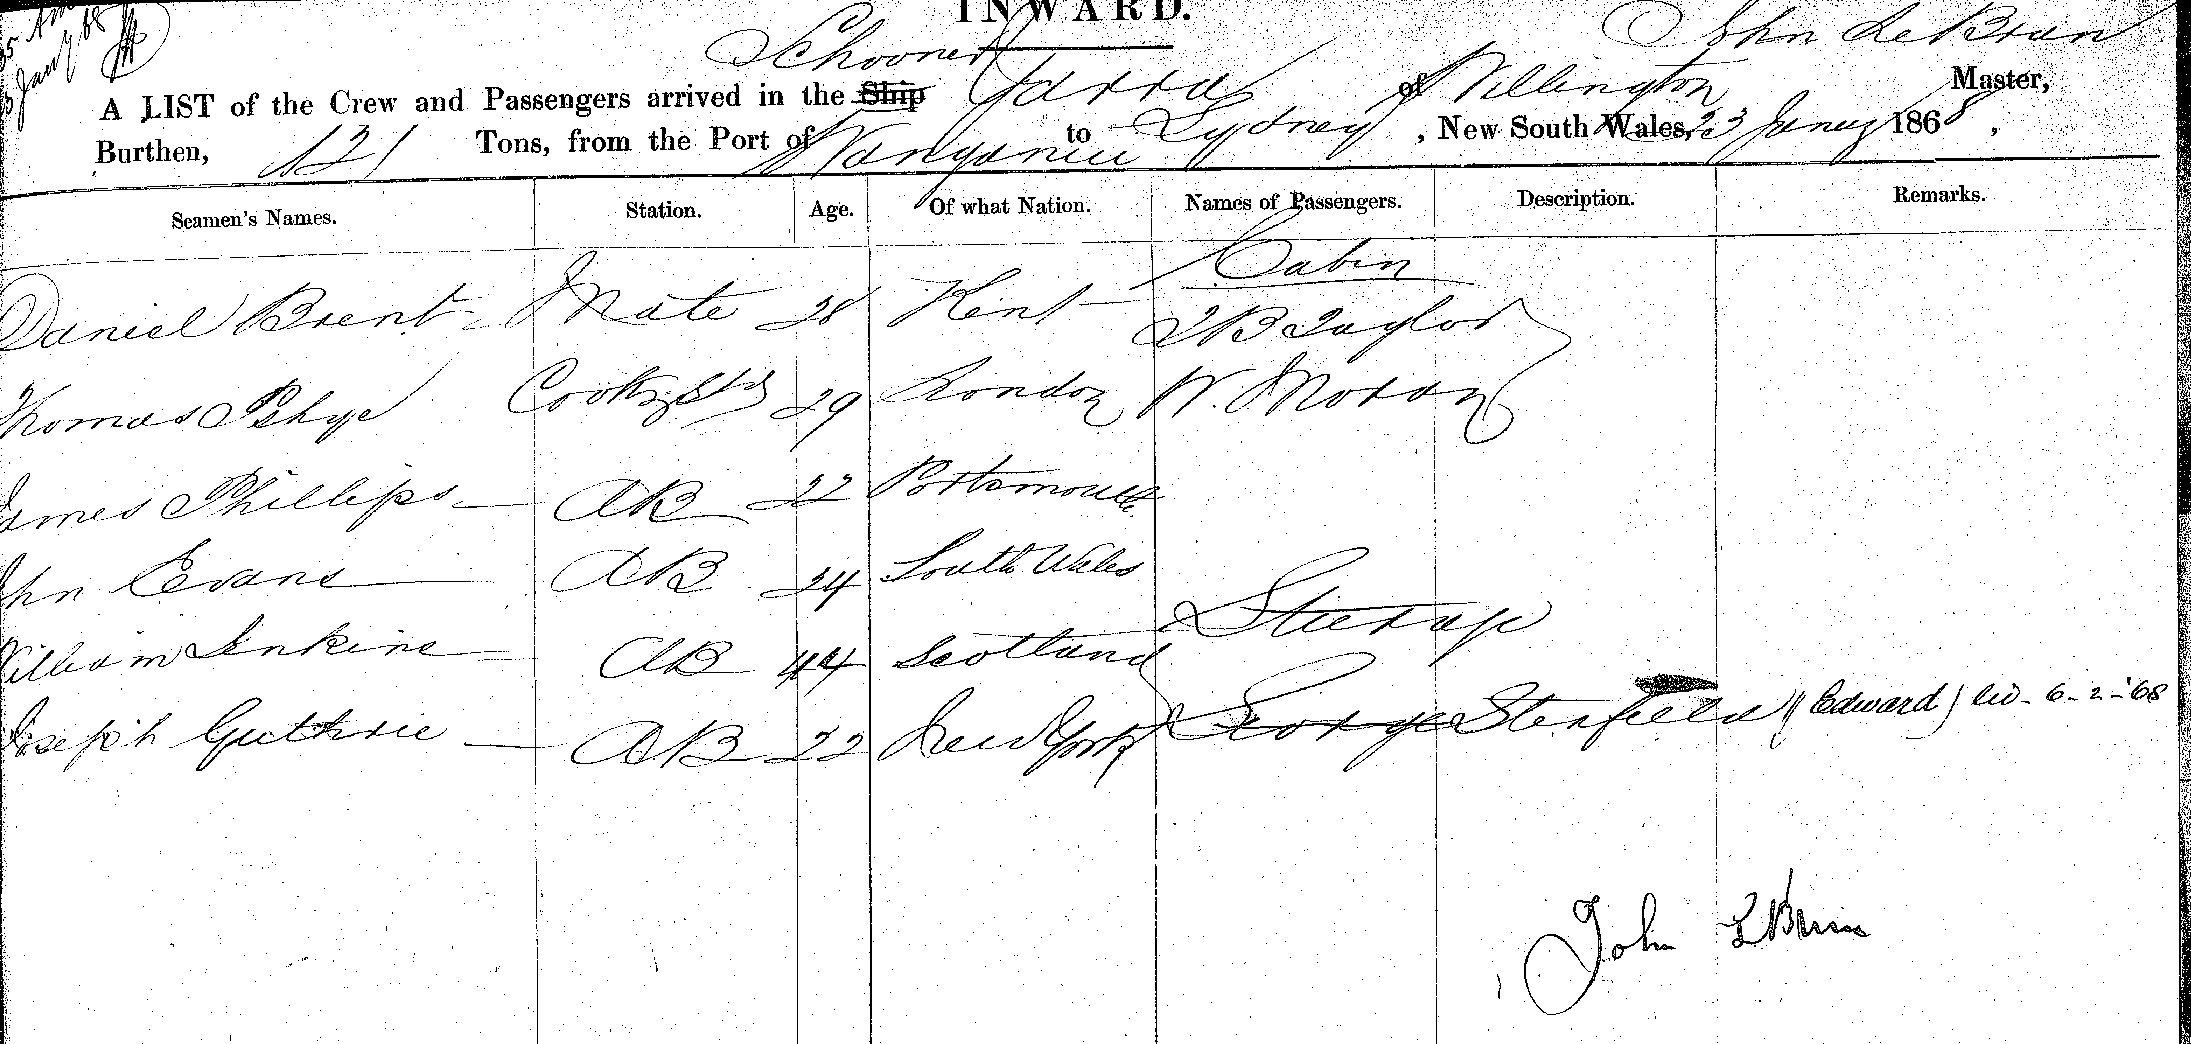 INWARD.
Schooner John LeBrun
A LIST of the Crew and Passengers arrived in the Ship Yarra of Wellington Master,
Burthen, 121 Tons, from the Port of Wanganui to Sydney, New South Wales, 23 Jany 1868,
Seamen's Names. Station. Age. Of what Nation. Names of Passengers. Description. Remarks.
Cabin
Daniel Brent Mate 28 Kent Taylor
Thomas Cook & Std 29 London W. Moran
James Phillips AB 22 Portsmouth
John Evans AB 24 South Wales
Steerage
William Jenkins AB 44 Scotland
Joseph Guthrie AB 22 New York George Stenfield (Edward) 6-2-'68
John LBrun